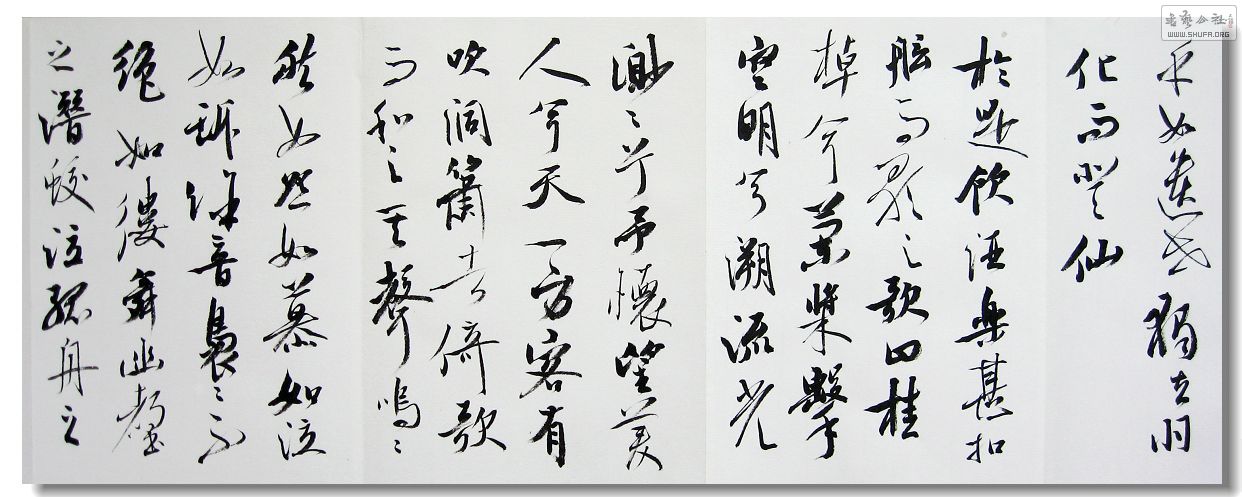 乎如遺世獨立羽
化而登仙
於是飲酒樂甚扣
舷而歌之歌曰桂
棹兮蘭槳擊
空明兮溯流光
渺々兮予懷望美
人兮天一方客有
吹洞簫者倚歌
而和之其聲嗚々
然如怨如慕如泣
如訴餘音裊々不
絕如縷舞幽壑
之潛蛟泣孤舟之
书藝公社
WWW.SHUFA.ORG